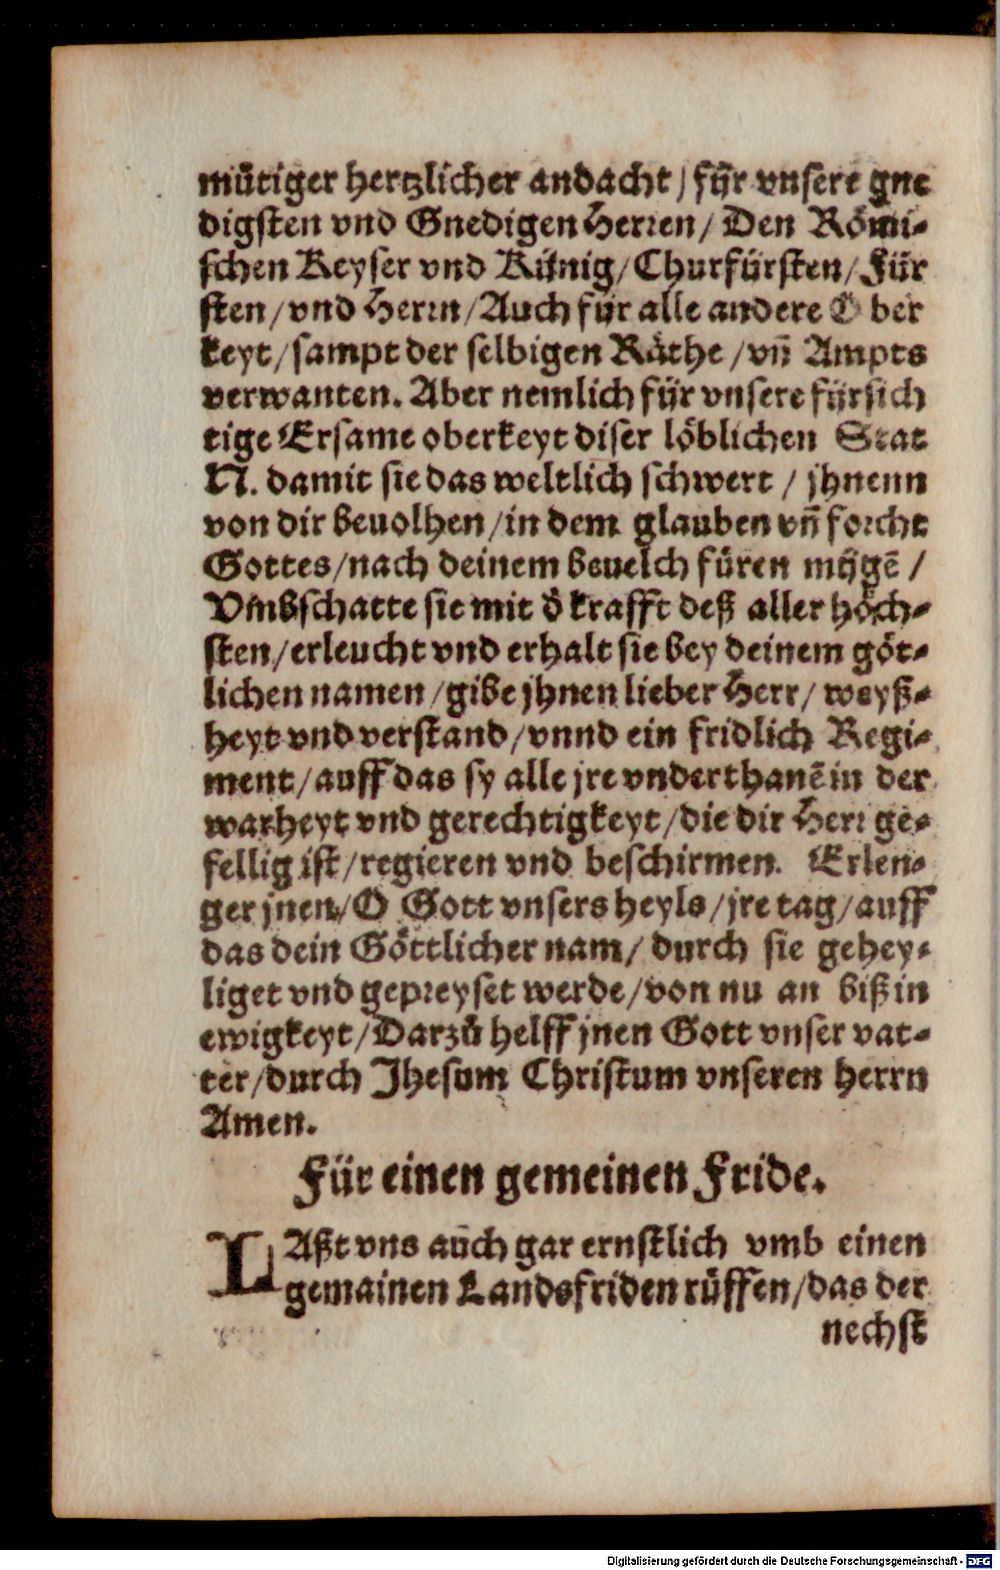 mütiger hertzlicher andacht / für vnsere gne
digsten vnd Gnedigen Herren / Den Römi-
schen Keyser vnd Künig / Churfürsten / Für
sten / vnd Herrn / Auch für alle andere Ober
keyt / sampt der selbigen Räthe / vñ Ampts
verwanten. Aber nemlich für vnsere fürsich
tige Ersame oberkeyt diser löblichen Stat
N. damit sie das weltlich schwert / jhnenn
von dir beuolhen / in dem glauben vñ forcht
Gottes / nach deinem beuelch füren mügē /
Vmbschatte sie mit ð krafft deß aller höch-
sten / erleucht vnd erhalt sie bey deinem göt-
lichen namen / gibe jhnen lieber Herr / weyß-
heyt vnd verstand / vnnd ein fridlich Regi-
ment / auff das sy alle jre vnderthanē in der
warheyt vnd gerechtigkeyt / die dir Herr ge-
fellig ist / regieren vnd beschirmen. Erlen-
ger jnen / O Gott vnsers heyls / jre tag / auff
das dein Göttlicher nam / durch sie gehey-
liget vnd gepreyset werde / von nu an biß in
ewigkeyt / Darzů helff jnen Gott vnser vat-
ter / durch Jhesum Christum vnseren herrn
Amen.
Für einen gemeinen Fride.
LAßt vns auch gar ernstlich vmb einen
gemainen Landsfriden rüffen / das der
nechst
Digitalisierung gefördert durch die Deutsche Forschungsgemeinschaft - DFG